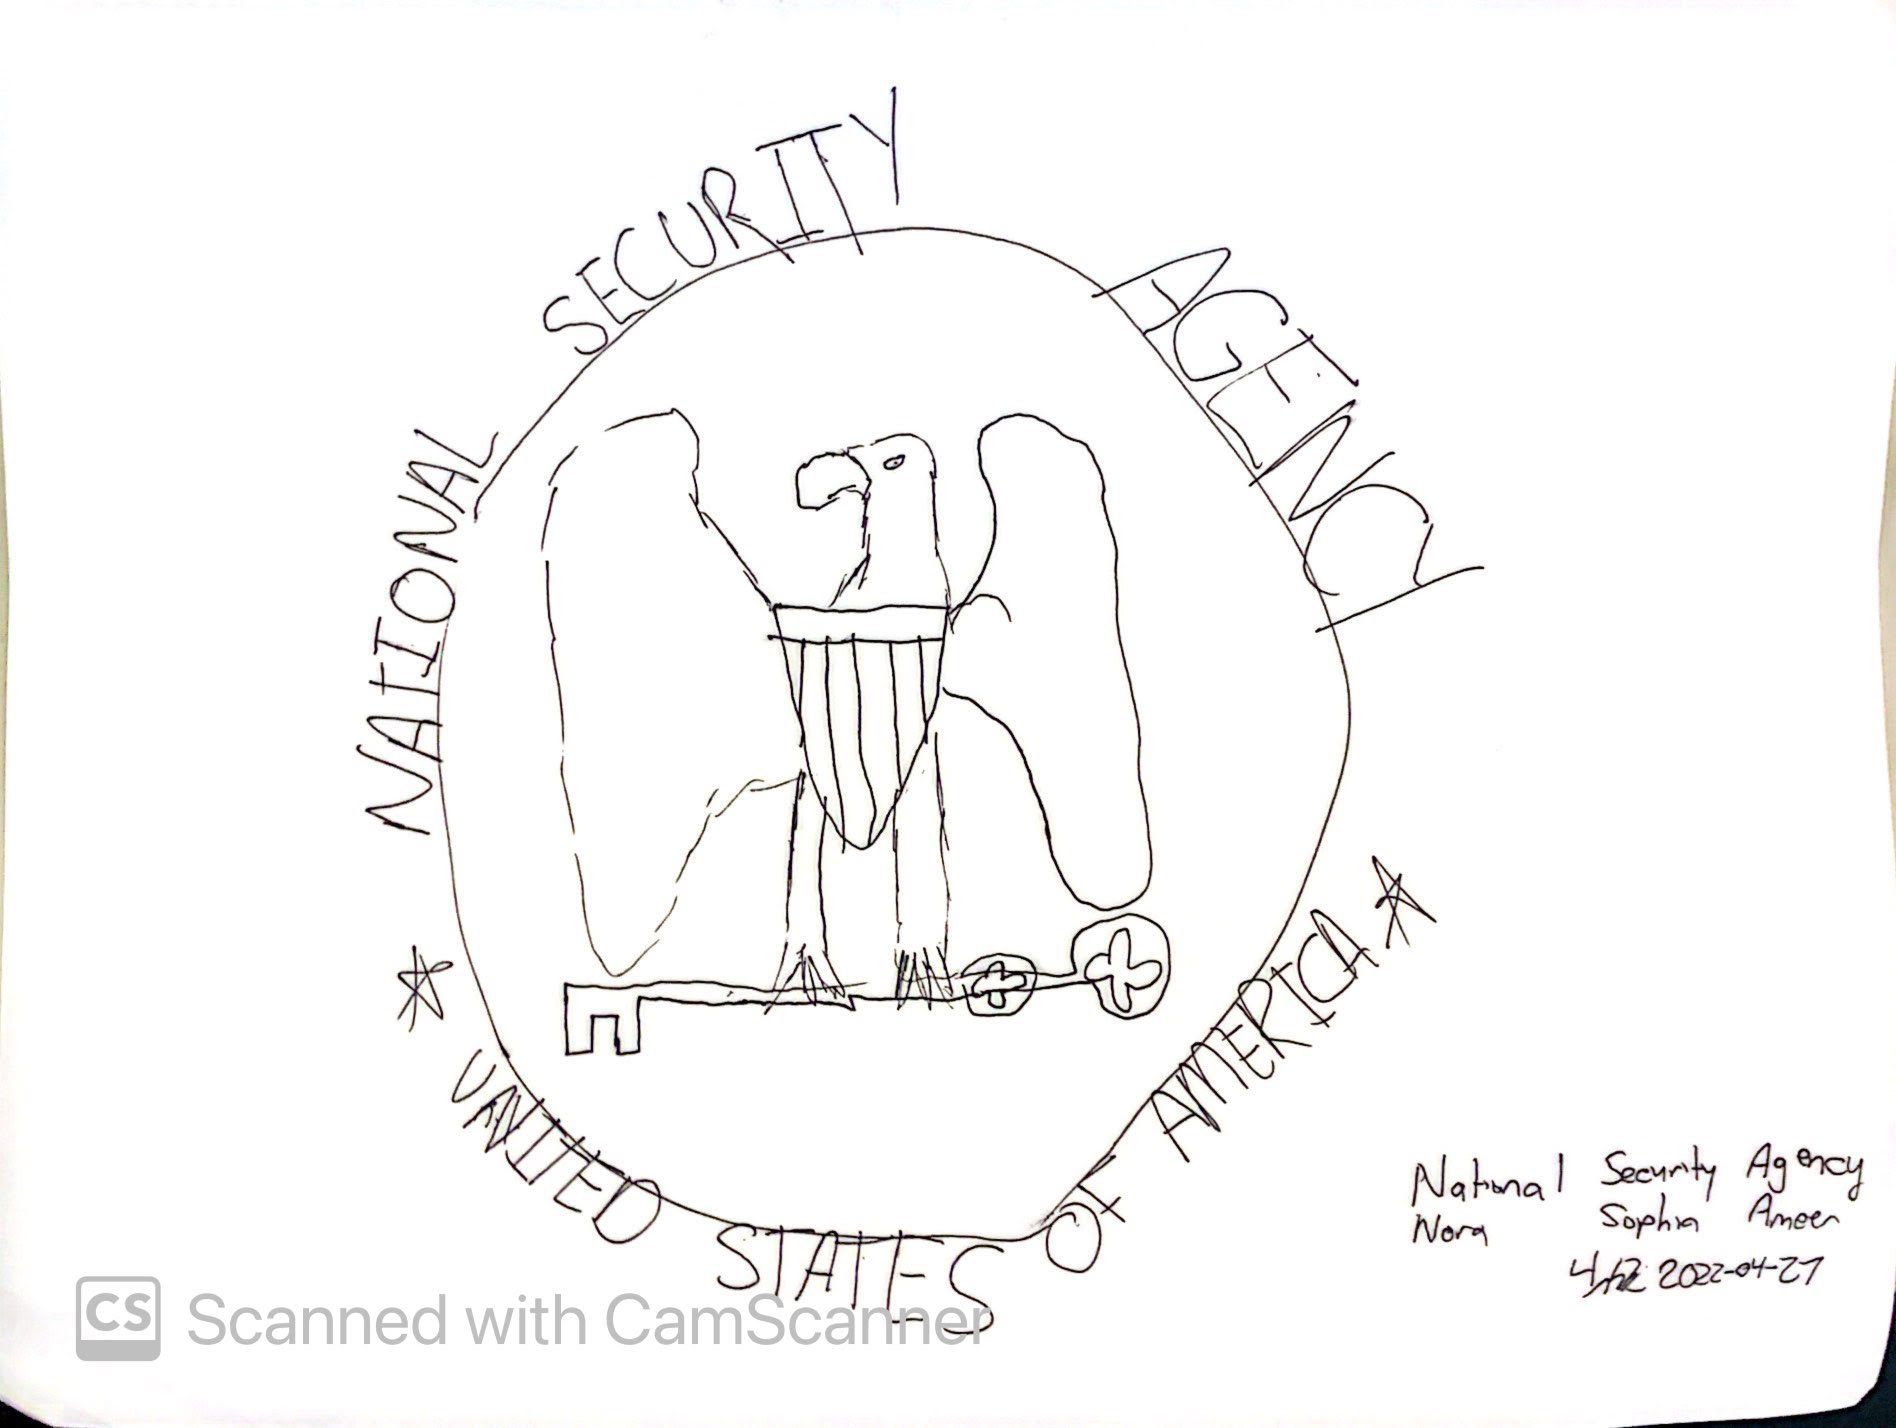 NATIONAL SECURITY AGENCY
UNITED STATES OF AMERICA
National Security Agency
Nora Sophia Ameen
2022-04-27
CS Scanned with CamScanner